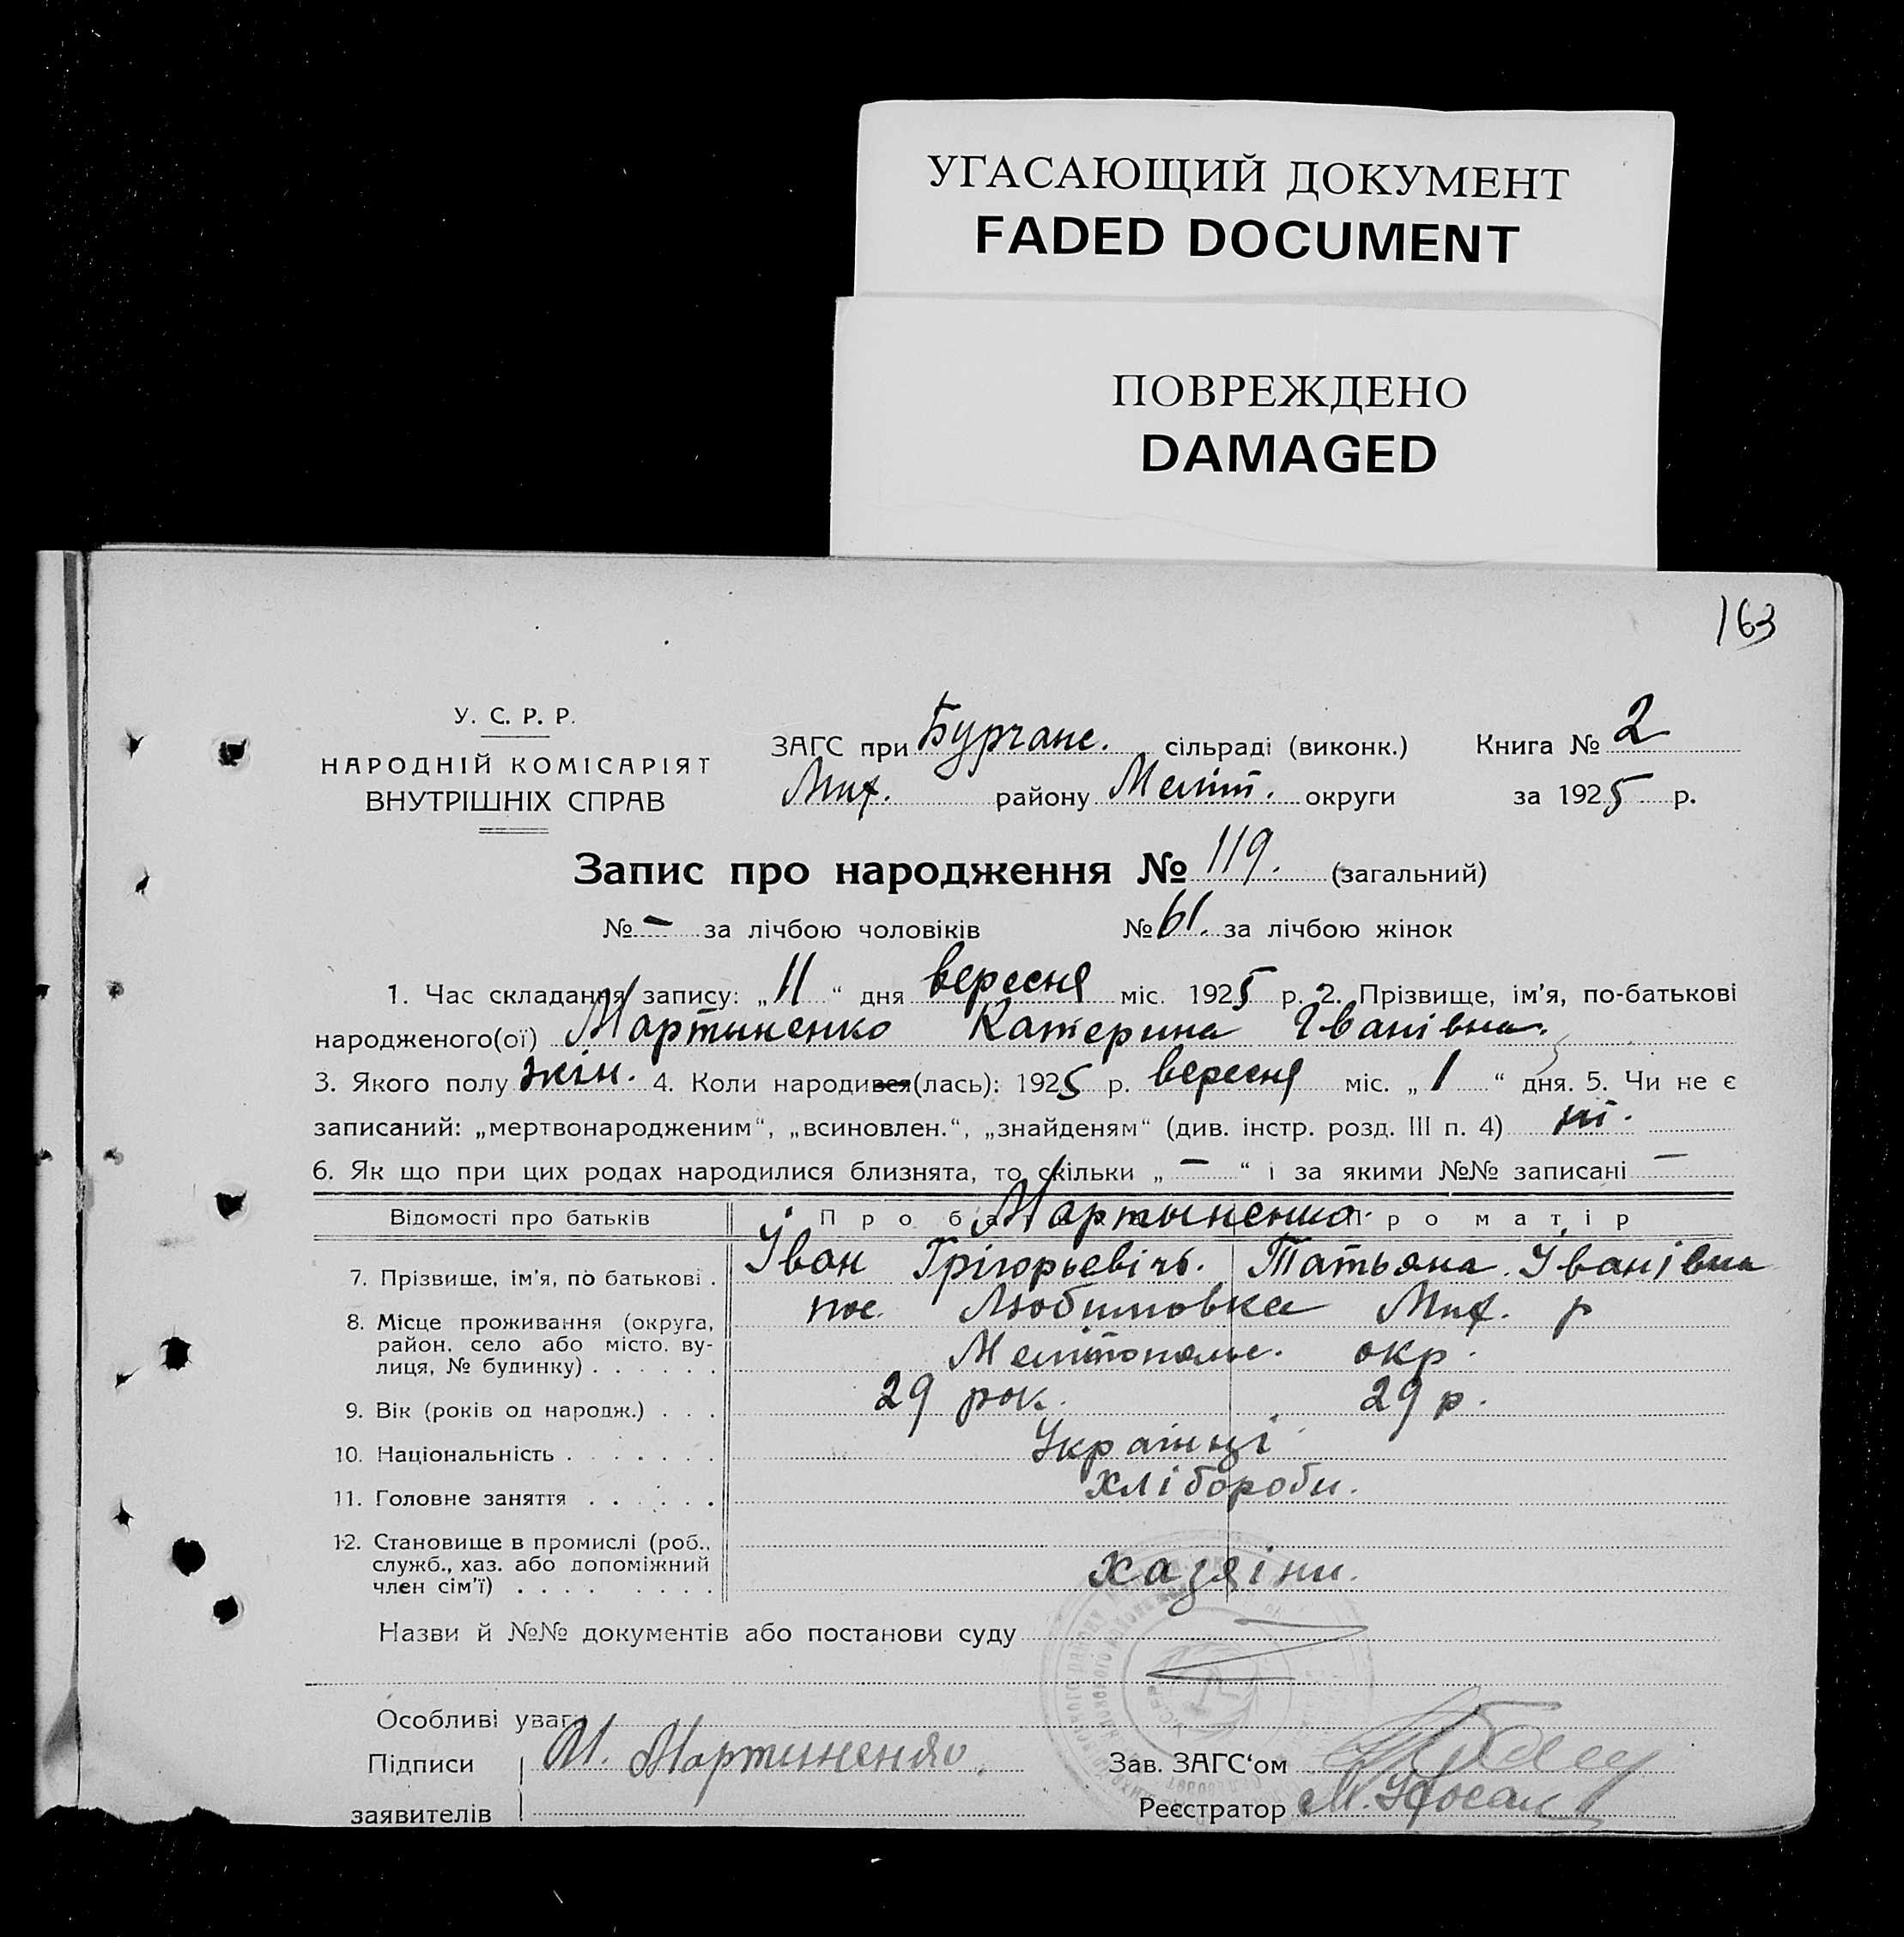 УГАСАЮЩИЙ ДОКУМЕНТ
FADED DOCUMENT
ПОВРЕЖДЕНО
DAMAGED
163
У. С. Р. Р.
НАРОДНІЙ КОМІСАРІЯТ
ВНУТРІШНІХ СПРАВ
ЗАГС при Бурчанс. сільраді (виконк.) Книга № 2
Мих. району Меліт. округи за 1925 р.
Запис про народження № 119. (загальний)
№ – за лічбою чоловіків № 61. за лічбою жінок
1. Час складання запису: „11“ дня вересня міс. 1925 р. 2. Прізвище, ім'я, по-батькові
народженого(ої) Мартиненко Катерина Іванівна.
3. Якого полу жін. 4. Коли народився(лась): 1925 р. вересня міс. „1“ дня. 5. Чи не є
записаний: „мертвонародженим“, „всиновлен.“, „знайденям“ (див. інстр. розд. III п. 4) ні.
6. Як що при цих родах народилися близнята, то скільки „–“ і за якими №№ записані –
Відомості про батьків Про ба Мартыненко. Про матір
7. Прізвище, ім'я, по батькові . Іван Грігорьевічъ. Татьяна Іванівна
8. Місце проживання (округа, пос. Любимовка Мих. р
район, село або місто, ву- Мелітопольс. окр.
лиця, № будинку) . . . . . .
9. Вік (років од народж.) . . . 29 рок. 29 р.
10. Національність . . . . . . . Українці
11. Головне заняття . . . . . . Хлібороби.
12. Становище в промислі (роб.,
служб., хаз. або допоміжний Хазяіни.
член сім'ї) . . . . . . . . .
Назви й №№ документів або постанови суду
Особливі уваги
Підписи И. Мартиненко. Зав. ЗАГС‘ом
заявителів Реєстратор М.